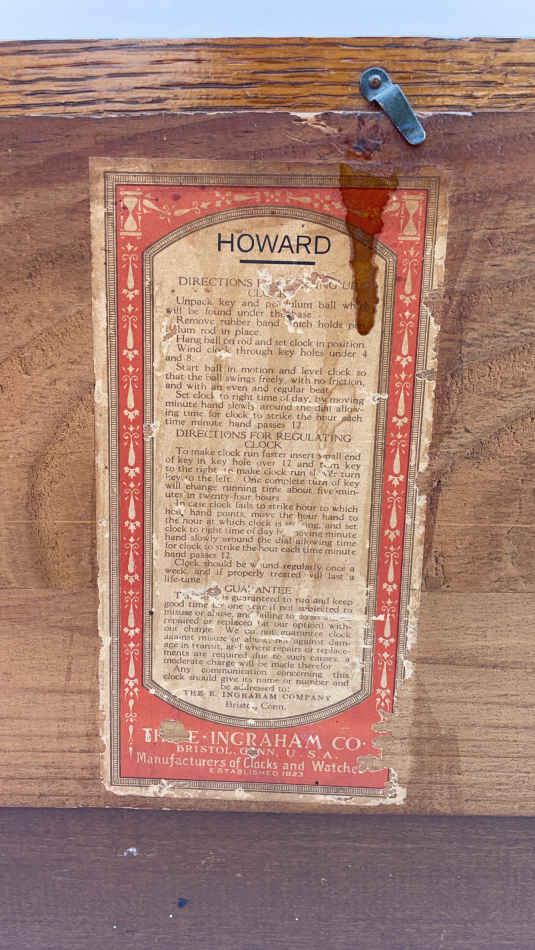 HOWARD
DIRECTIONS
CLOCK
Unpack key and pendulum ball
will be found under the base.
Remove rubber band which holds
lum rod in place.
Hang ball on rod and set clock in position.
Wind clock through key holes under 4
and 8.
Start ball in motion and level clock so
that the ball swings freely, with no friction,
and with an even and regular beat.
Set clock to right time of day, by moving
minute hand slowly around the dial allow-
ing time for clock to strike the hour each
time minute hand passes 12.
DIRECTIONS FOR REGULATING
CLOCK
To make clock run faster insert small end
of key in key hole over 12 and turn key
to the right, to make clock run slower turn
key to the left. One complete turn of key
will change running time about five min-
utes in twenty-four hours.
In case clock fails to strike hour to which
hour hand points, move the hour hand to
the hour at which clock is striking, and set
clock to right time of day by moving minute
hand slowly around the dial allowing time
for clock to strike the hour each time minute
hand passes 12.
Clock should be wound regularly once a
week, and if properly treated will last a
life-time.
GUARANTEE
is guaranteed to run and keep
good time for one year if not subjected to
misuse or abuse, and failing to do so
repaired or replaced (at our option) with-
out charge. We do not guarantee clock
against misuse or abuse, nor against dam-
age in transit, and where repairs or replace-
ments are required due to such causes, a
moderate charge will be made therefor.
Any communication concerning this
clock should give its name or number and
be addressed to:
THE E. INGRAHAM COMPANY
Bristol, Conn.
THE E. INGRAHAM CO.
BRISTOL, CONN., U. S. A.
Manufacturers of Clocks and Watches
ESTABLISHED 1823